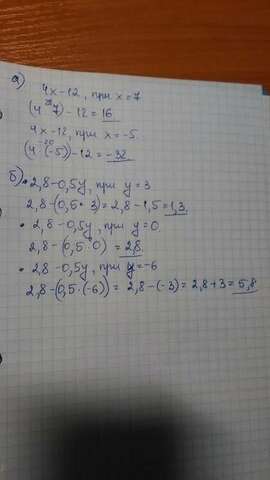 а) 4x-12, при x=7
(4·7)-12=16
28
4x-12, при x=-5
(4·(-5))-12=-32
-20
б)• 2,8-0,5y, при y=3
2,8-(0,5·3)=2,8-1,5=1,3
• 2,8-0,5y, при y=0
2,8-(0,5·0)=2,8
• 2,8-0,5y, при y=-6
2,8-(0,5·(-6))=2,8-(-3)=2,8+3=5,8